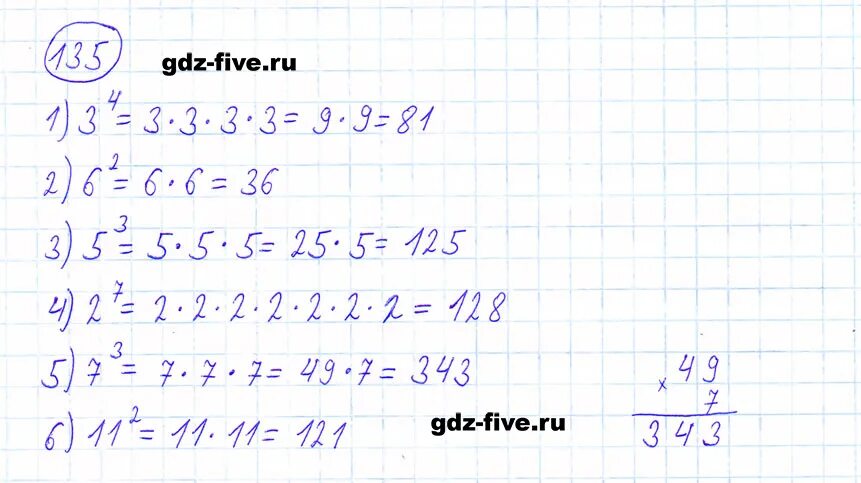 135 gdz-five.ru
1) 3⁴ = 3·3·3·3 = 9·9 = 81
2) 6² = 6·6 = 36
3) 5³ = 5·5·5 = 25·5 = 125
4) 2⁷ = 2·2·2·2·2·2·2 = 128
5) 7³ = 7·7·7 = 49·7 = 343
6) 11² = 11·11 = 121
gdz-five.ru
49
× 7
343